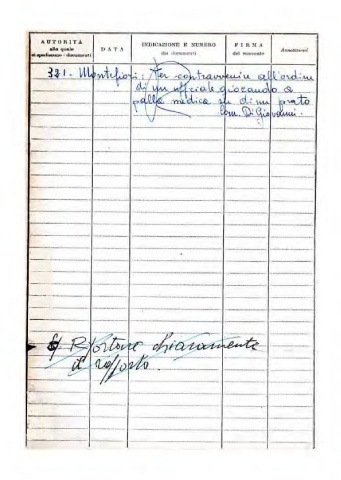 AUTORITÀ
alla quale
si spediscono i documenti
DATA
INDICAZIONE E NUMERO
dei documenti
FIRMA
del ricevente
Annotazioni
321. Montefiori: Per contravvenire all'ordine
di un ufficiale giocando a
palla medica su di un prato
Com. Di Giovanni.
Riportare chiaramente
il rapporto.